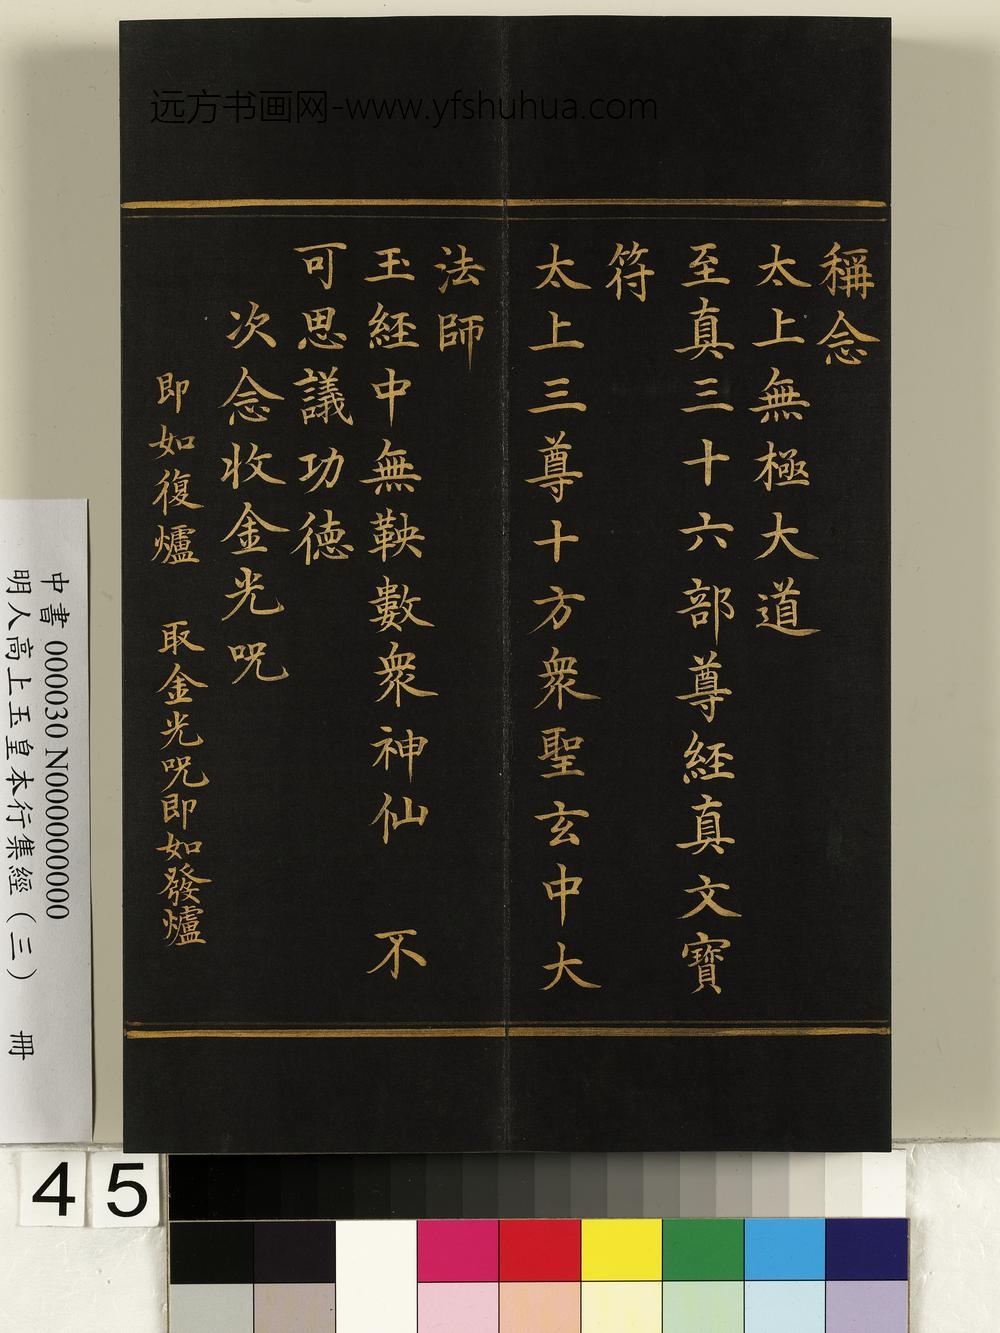 远方书画网-www.yfshuhua.com
稱念
太上無極大道
至真三十六部尊經真文寶
符
太上三尊十方衆聖玄中大
法師
玉經中無鞅數衆神仙 不
可思議功德
次念收金光呪
即如復爐 取金光呪即如發爐
中書 000030 N000000000
明人高上玉皇本行集經(三) 冊
45